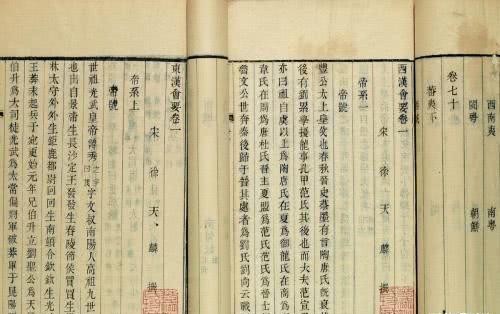 西南夷 南粤
閩粤 朝鮮
蕃夷下
卷七十
西漢會要卷一
宋 徐 天 麟 撰
帝系一
帝號
豐公太上皇父也春秋晉史蔡墨有言陶唐氏既衰
後有劉累學擾龍事孔甲范氏其後也而大夫范宣
亦曰祖自虞以上爲陶唐氏在夏爲御龍氏在商爲
韋氏在周爲唐杜氏晉主夏盟爲范氏范氏爲晉士
魯文公世奔秦後歸于晉其處者爲劉氏劉向云戰
東漢會要卷一
宋 徐 天 麟 撰
帝系上
帝號
世祖光武皇帝諱秀字文叔南陽人高祖九世
也出自景帝生長沙定王發發生舂陵節侯買買生
林太守外外生鉅鹿都尉回回生南頓令欽欽生光
王莽末起兵于宛更始元年兄伯升立劉聖公爲天
伯升爲大司徒光武爲太常偏將軍破莽軍于昆陽